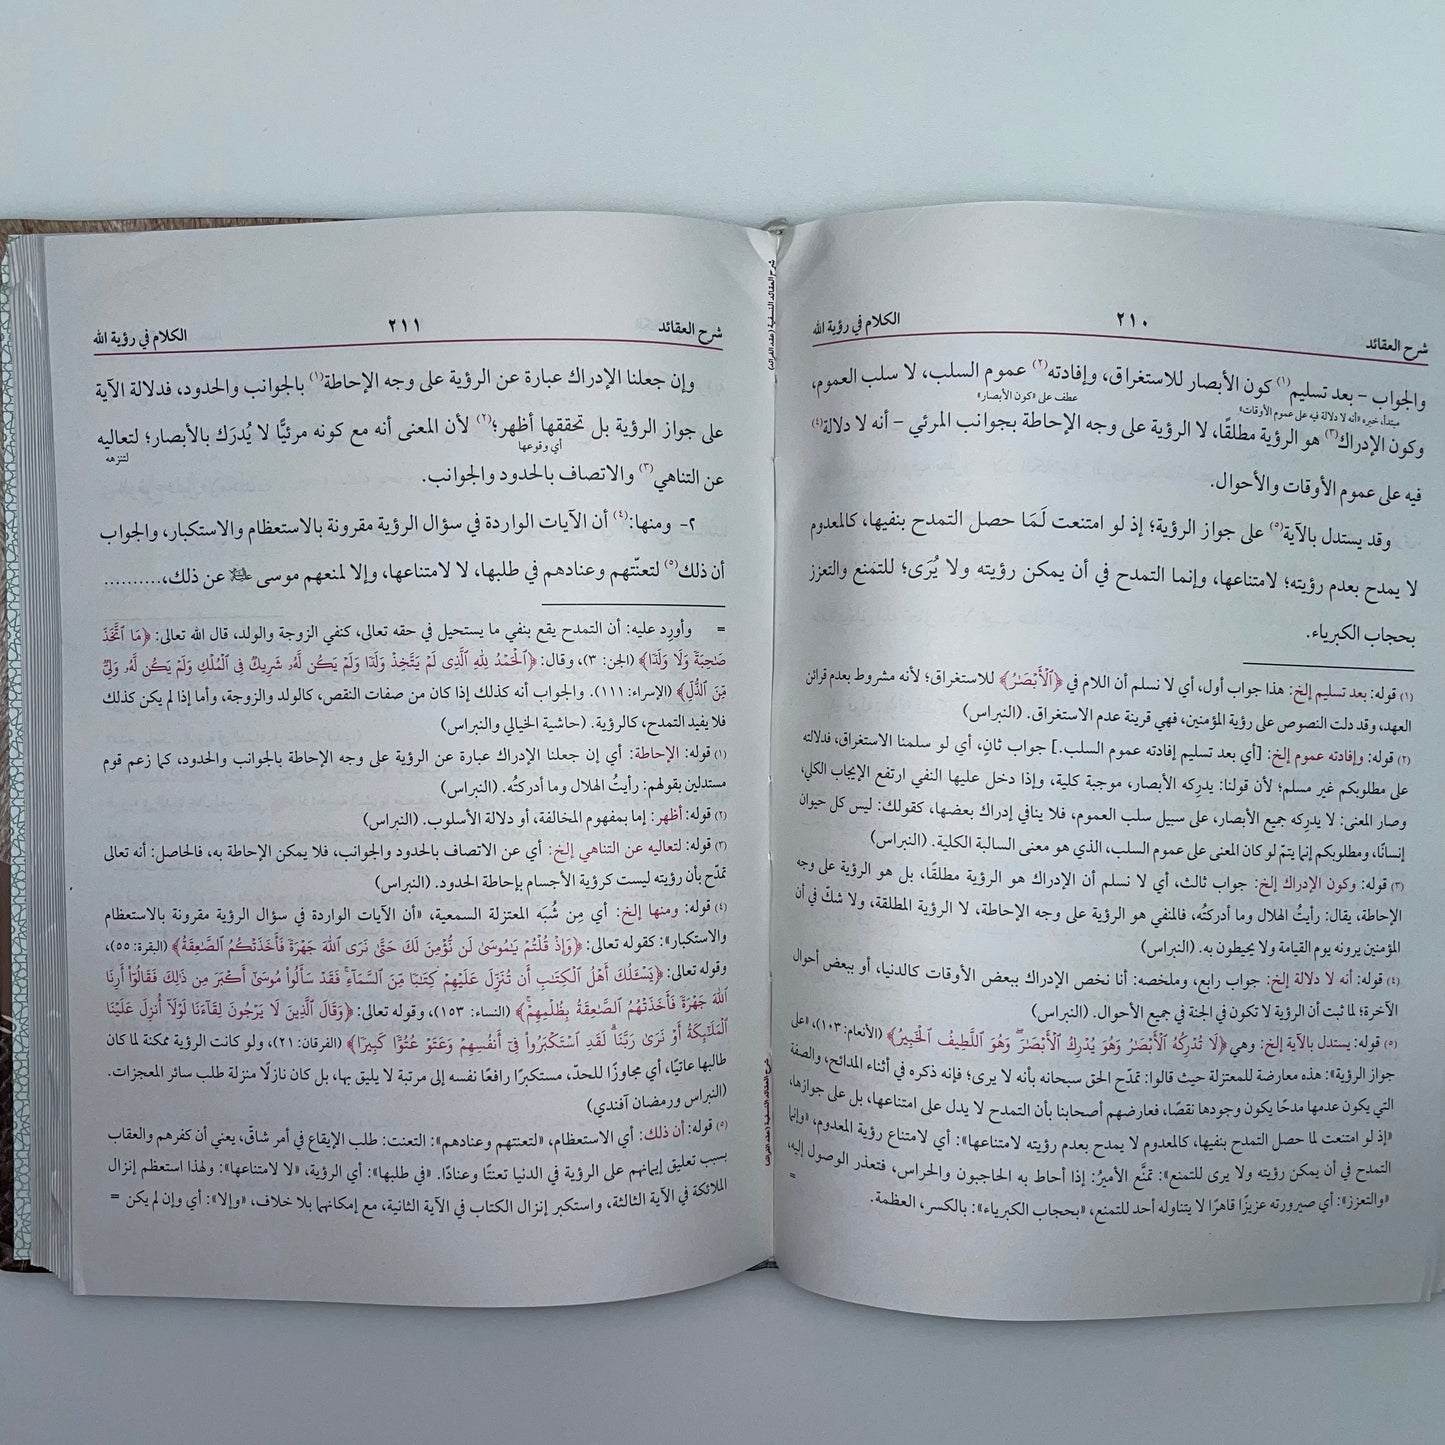 شرح العقائد ٢١٠ الكلام في رؤية الله
والجواب - بعد تسليم(١) كون الأبصار للاستغراق، وإفادته(٢) عموم السلب، لا سلب العموم،
مبتدأ، خبره «أنه لا دلالة فيه على عموم الأوقات» عطف على «كون الأبصار»
وكون الإدراك(٣) هو الرؤية مطلقًا، لا الرؤية على وجه الإحاطة بجوانب المرئي - أنه لا دلالة(٤)
فيه على عموم الأوقات والأحوال.
وقد يستدل بالآية(٥) على جواز الرؤية؛ إذ لو امتنعت لَمَا حصل التمدح بنفيها، كالمعدوم
لا يمدح بعدم رؤيته؛ لامتناعها، وإنما التمدح في أن يمكن رؤيته ولا يُرَى؛ للتمنع والتعزز
بحجاب الكبرياء.
(١) قوله: بعد تسليم إلخ: هذا جواب أول، أي لا نسلم أن اللام في ﴿ٱلْأَبْصَٰرُ﴾ للاستغراق؛ لأنه مشروط بعدم قرائن
العهد، وقد دلت النصوص على رؤية المؤمنين، فهي قرينة عدم الاستغراق. (النبراس)
(٢) قوله: وإفادته عموم إلخ: [أي بعد تسليم إفادته عموم السلب.] جواب ثانٍ، أي لو سلمنا الاستغراق، فدلالته
على مطلوبكم غير مسلم؛ لأن قولنا: يدركه الأبصار، موجبة كلية، وإذا دخل عليها النفي ارتفع الإيجاب الكلي،
وصار المعنى: لا يدركه جميع الأبصار، على سبيل سلب العموم، فلا ينافي إدراك بعضها، كقولك: ليس كل حيوان
إنسانًا، ومطلوبكم إنما يتمّ لو كان المعنى على عموم السلب، الذي هو معنى السالبة الكلية. (النبراس)
(٣) قوله: وكون الإدراك إلخ: جواب ثالث، أي لا نسلم أن الإدراك هو الرؤية مطلقًا، بل هو الرؤية على وجه
الإحاطة، يقال: رأيتُ الهلال وما أدركتُه، فالمنفي هو الرؤية على وجه الإحاطة، لا الرؤية المطلقة، ولا شكّ في أن
المؤمنين يرونه يوم القيامة ولا يحيطون به. (النبراس)
(٤) قوله: أنه لا دلالة إلخ: جواب رابع، وملخصه: أنا نخص الإدراك ببعض الأوقات كالدنيا، أو ببعض أحوال
الآخرة؛ لما ثبت أن الرؤية لا تكون في الجنة في جميع الأحوال. (النبراس)
(٥) قوله: يستدل بالآية إلخ: وهي ﴿لَا تُدْرِكُهُ ٱلْأَبْصَٰرُ وَهُوَ يُدْرِكُ ٱلْأَبْصَٰرَ وَهُوَ ٱللَّطِيفُ ٱلْخَبِيرُ﴾ (الأنعام: ١٠٣)، «على
جواز الرؤية»: هذه معارضة للمعتزلة حيث قالوا: تمدّح الحق سبحانه بأنه لا يرى؛ فإنه ذكره في أثناء المدائح، والصفة
التي يكون عدمها مدحًا يكون وجودها نقصًا، فعارضهم أصحابنا بأن التمدح لا يدل على امتناعها، بل على جوازها،
«إذ لو امتنعت لما حصل التمدح بنفيها، كالمعدوم لا يمدح بعدم رؤيته لامتناعها»: أي لامتناع رؤية المعدوم، «وإنما
التمدح في أن يمكن رؤيته ولا يرى للتمنع»: تمنَّع الأميرُ: إذا أحاط به الحاجبون والحراس، فتعذر الوصول إليه،
«والتعزز»: أي صيرورته عزيزًا قاهرًا لا يتناوله أحد للتمنع، «بحجاب الكبرياء»: بالكسر، العظمة. =
شرح العقائد ٢١١ الكلام في رؤية الله
وإن جعلنا الإدراك عبارة عن الرؤية على وجه الإحاطة(١) بالجوانب والحدود، فدلالة الآية
على جواز الرؤية بل تحققها أظهر؛(٢) لأن المعنى أنه مع كونه مرئيًّا لا يُدرَك بالأبصار؛ لتعاليه
أي وقوعها لتنزهه
عن التناهي(٣) والاتصاف بالحدود والجوانب.
٢- ومنها:(٤) أن الآيات الواردة في سؤال الرؤية مقرونة بالاستعظام والاستكبار، والجواب
أن ذلك(٥) لتعنّتهم وعنادهم في طلبها، لا لامتناعها، وإلا لمنعهم موسى عليه السلام عن ذلك،..........
= وأورِد عليه: أن التمدح يقع بنفي ما يستحيل في حقه تعالى، كنفي الزوجة والولد، قال الله تعالى: ﴿مَا ٱتَّخَذَ
صَٰحِبَةً وَلَا وَلَدًا﴾ (الجن: ٣)، وقال: ﴿ٱلْحَمْدُ لِلَّهِ ٱلَّذِى لَمْ يَتَّخِذْ وَلَدًا وَلَمْ يَكُن لَّهُۥ شَرِيكٌ فِى ٱلْمُلْكِ وَلَمْ يَكُن لَّهُۥ وَلِىٌّ
مِّنَ ٱلذُّلِّ﴾ (الإسراء: ١١١). والجواب أنه كذلك إذا كان من صفات النقص، كالولد والزوجة، وأما إذا لم يكن كذلك
فلا يفيد التمدح، كالرؤية. (حاشية الخيالي والنبراس)
(١) قوله: الإحاطة: أي إن جعلنا الإدراك عبارة عن الرؤية على وجه الإحاطة بالجوانب والحدود، كما زعم قوم
مستدلين بقولهم: رأيتُ الهلال وما أدركتُه. (النبراس)
(٢) قوله: أظهر: إما بمفهوم المخالفة، أو دلالة الأسلوب. (النبراس)
(٣) قوله: لتعاليه عن التناهي إلخ: أي عن الاتصاف بالحدود والجوانب، فلا يمكن الإحاطة به، فالحاصل: أنه تعالى
تمدّح بأن رؤيته ليست كرؤية الأجسام بإحاطة الحدود. (النبراس)
(٤) قوله: ومنها إلخ: أي مِن شُبَه المعتزلة السمعية، «أن الآيات الواردة في سؤال الرؤية مقرونة بالاستعظام
والاستكبار»: كقوله تعالى: ﴿وَإِذْ قُلْتُمْ يَٰمُوسَىٰ لَن نُّؤْمِنَ لَكَ حَتَّىٰ نَرَى ٱللَّهَ جَهْرَةً فَأَخَذَتْكُمُ ٱلصَّٰعِقَةُ﴾ (البقرة: ٥٥)،
وقوله تعالى: ﴿يَسْـَٔلُكَ أَهْلُ ٱلْكِتَٰبِ أَن تُنَزِّلَ عَلَيْهِمْ كِتَٰبًا مِّنَ ٱلسَّمَآءِ فَقَدْ سَأَلُوا۟ مُوسَىٰٓ أَكْبَرَ مِن ذَٰلِكَ فَقَالُوٓا۟ أَرِنَا
ٱللَّهَ جَهْرَةً فَأَخَذَتْهُمُ ٱلصَّٰعِقَةُ بِظُلْمِهِمْ﴾ (النساء: ١٥٣)، وقوله تعالى: ﴿وَقَالَ ٱلَّذِينَ لَا يَرْجُونَ لِقَآءَنَا لَوْلَآ أُنزِلَ عَلَيْنَا
ٱلْمَلَٰٓئِكَةُ أَوْ نَرَىٰ رَبَّنَا لَقَدِ ٱسْتَكْبَرُوا۟ فِىٓ أَنفُسِهِمْ وَعَتَوْ عُتُوًّا كَبِيرًا﴾ (الفرقان: ٢١)، ولو كانت الرؤية ممكنة لما كان
طالبها عاتيًا، أي مجاوزًا للحدّ، مستكبرًا رافعًا نفسه إلى مرتبة لا يليق بها، بل كان نازلًا منزلة طلب سائر المعجزات.
(النبراس ورمضان آفندي)
(٥) قوله: أن ذلك: أي الاستعظام، «لتعنتهم وعنادهم»: التعنت: طلب الإيقاع في أمر شاقّ، يعني أن كفرهم والعقاب
بسبب تعليق إيمانهم على الرؤية في الدنيا تعنتًا وعنادًا. «في طلبها»: أي الرؤية، «لا لامتناعها»: ولهذا استعظم إنزال
الملائكة في الآية الثالثة، واستكبر إنزال الكتاب في الآية الثانية، مع إمكانهما بلا خلاف، «وإلا»: أي وإن لم يكن =
شرح العقائد النسفية (عقد الفرائد)
شرح العقائد النسفية (عقد الفرائد)